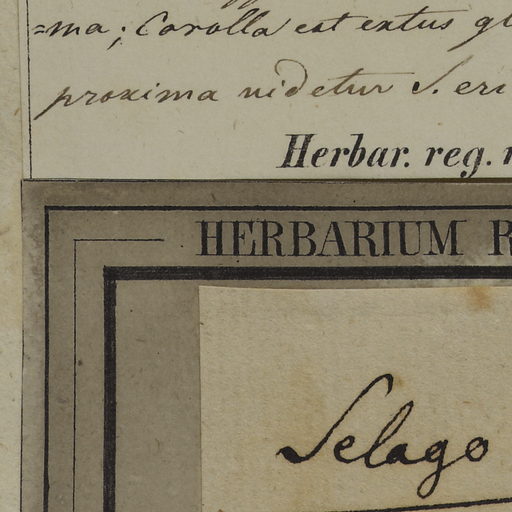 =ma; Corolla est extus gl
proxima videtur S. eri
Herbar. reg. 
HERBARIUM R
Selago